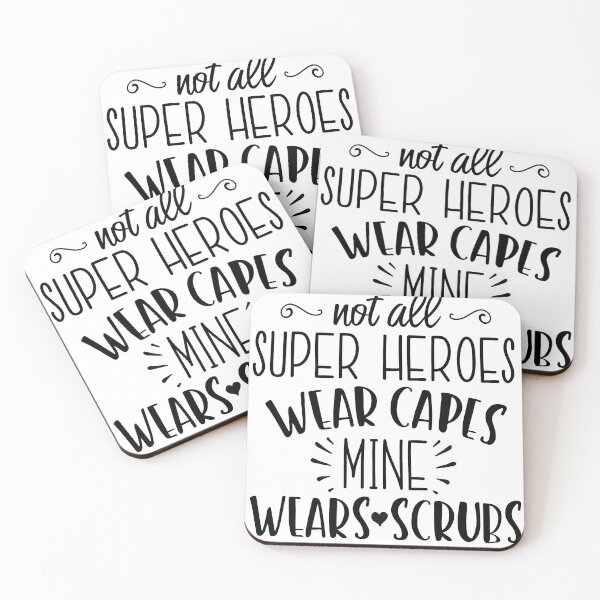 not all
SUPER HEROES
WEAR
not all
SUPER HEROES
WEAR CAPES
MINE
not all
SUPER HEROES
WEAR CAPES
MINE
WEARS♥
not all
SUPER HEROES
WEAR CAPES
MINE
WEARS♥SCRUBS